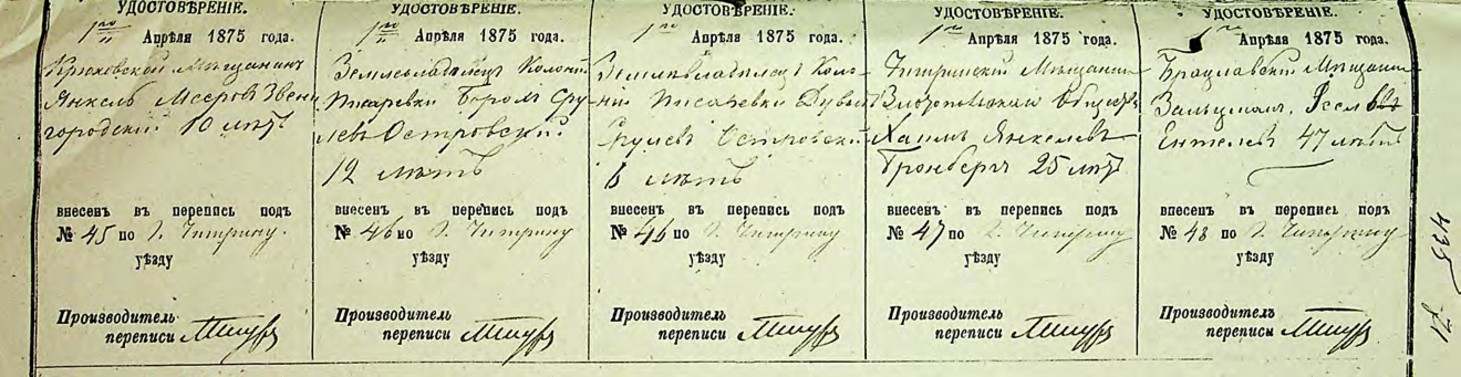 УДОСТОВѢРЕНІЕ.
1го Апрѣля 1875 года.
Крюковской Мѣщанинъ
Янкель Мееровъ Звени
городскій 10 лѣтъ
внесенъ въ перепись подъ
№ 45 по г. Чигирину.
уѣзду
Производитель
переписи
УДОСТОВѢРЕНІЕ.
1го Апрѣля 1875 года.
Землевладѣлецъ Колоніи
Писаревки Берко Сру
левъ Островскій
12 лѣтъ
внесенъ въ перепись подъ
№ 46 по г. Чигирину
уѣзду
Производитель
переписи
УДОСТОВѢРЕНІЕ.
1го Апрѣля 1875 года.
Землевладѣлецъ Коло-
ніи Писаревки
Срулевъ Островскій
6 лѣтъ
внесенъ въ перепись подъ
№ 46 по г. Чигирину
уѣзду
Производитель
переписи
УДОСТОВѢРЕНІЕ.
1го Апрѣля 1875 года.
Чигиринскій Мѣщанинъ
Хаимъ Янкелевъ
Бронбергъ 25 лѣтъ
внесенъ въ перепись подъ
№ 47 по г. Чигирину
уѣзду
Производитель
переписи
УДОСТОВѢРЕНІЕ.
1го Апрѣля 1875 года.
Брацлавскій Мѣщанинъ
Зальцманъ
47 лѣтъ
внесенъ въ перепись подъ
№ 48 по г. Чигирину
уѣзду
Производитель
переписи